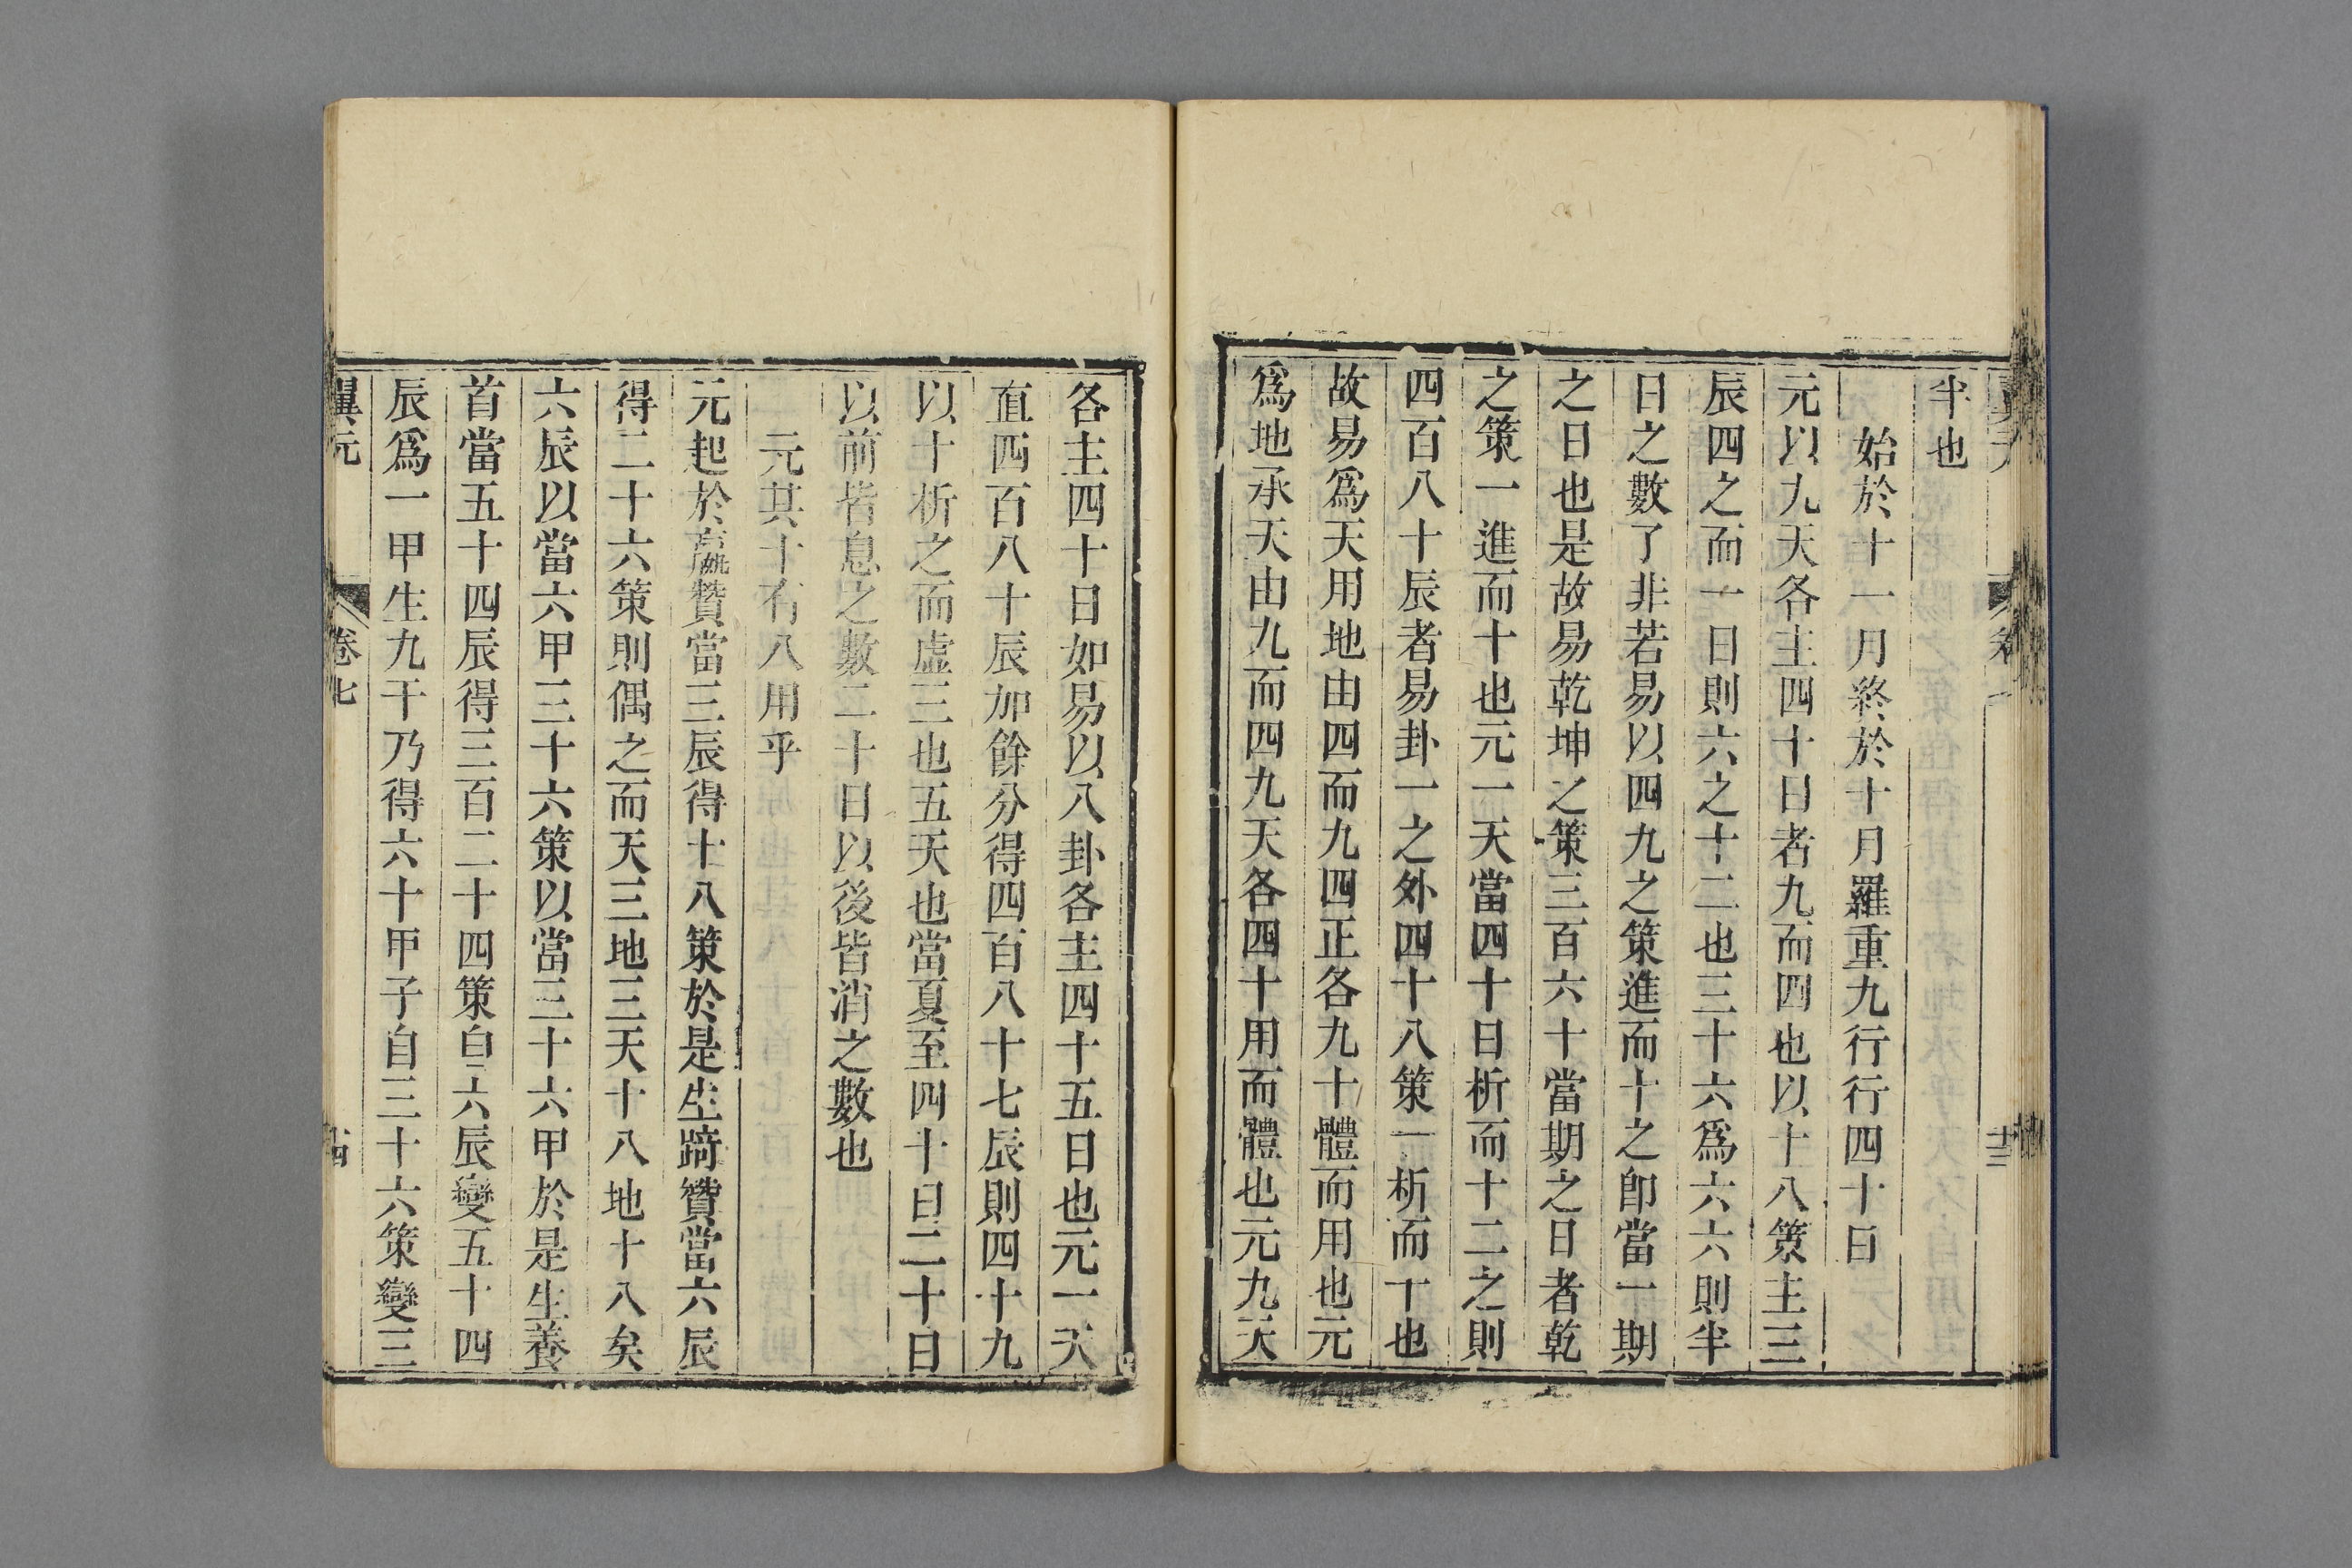 半也
始於十一月終於十月羅重九行行四十日
元以九天各主四十日者九而四也以十八策主三
辰四之而一日則六之十二也三十六爲六六則半
日之數了非若易以四九之策進而十之卽當一期
之日也是故易乾坤之策三百六十當期之日者乾
之策一進而十也元一天當四十日析而十二之則
四百八十辰者易卦一之外四十八策一析而十也
故易爲天用地由四而九四正各九十體而用也元
爲地承天由九而四九天各四十用而體也元九天
各主四十日如易以八卦各主四十五日也元一天
直四百八十辰加餘分得四百八十七辰則四十九
以十析之而虛三也五天也當夏至四十日二十日
以前皆息之數二十日以後皆消之數也
元其十有八用乎
元起於贊當三辰得十八策於是生踦贊當六辰
得二十六策則偶之而天三地三天十八地十八矣
六辰以當六甲三十六策以當三十六甲於是生養
首當五十四辰得三百二十四策自六辰變五十四
辰爲一甲生九干乃得六十甲子自三十六策變三
翼元 卷七 十四